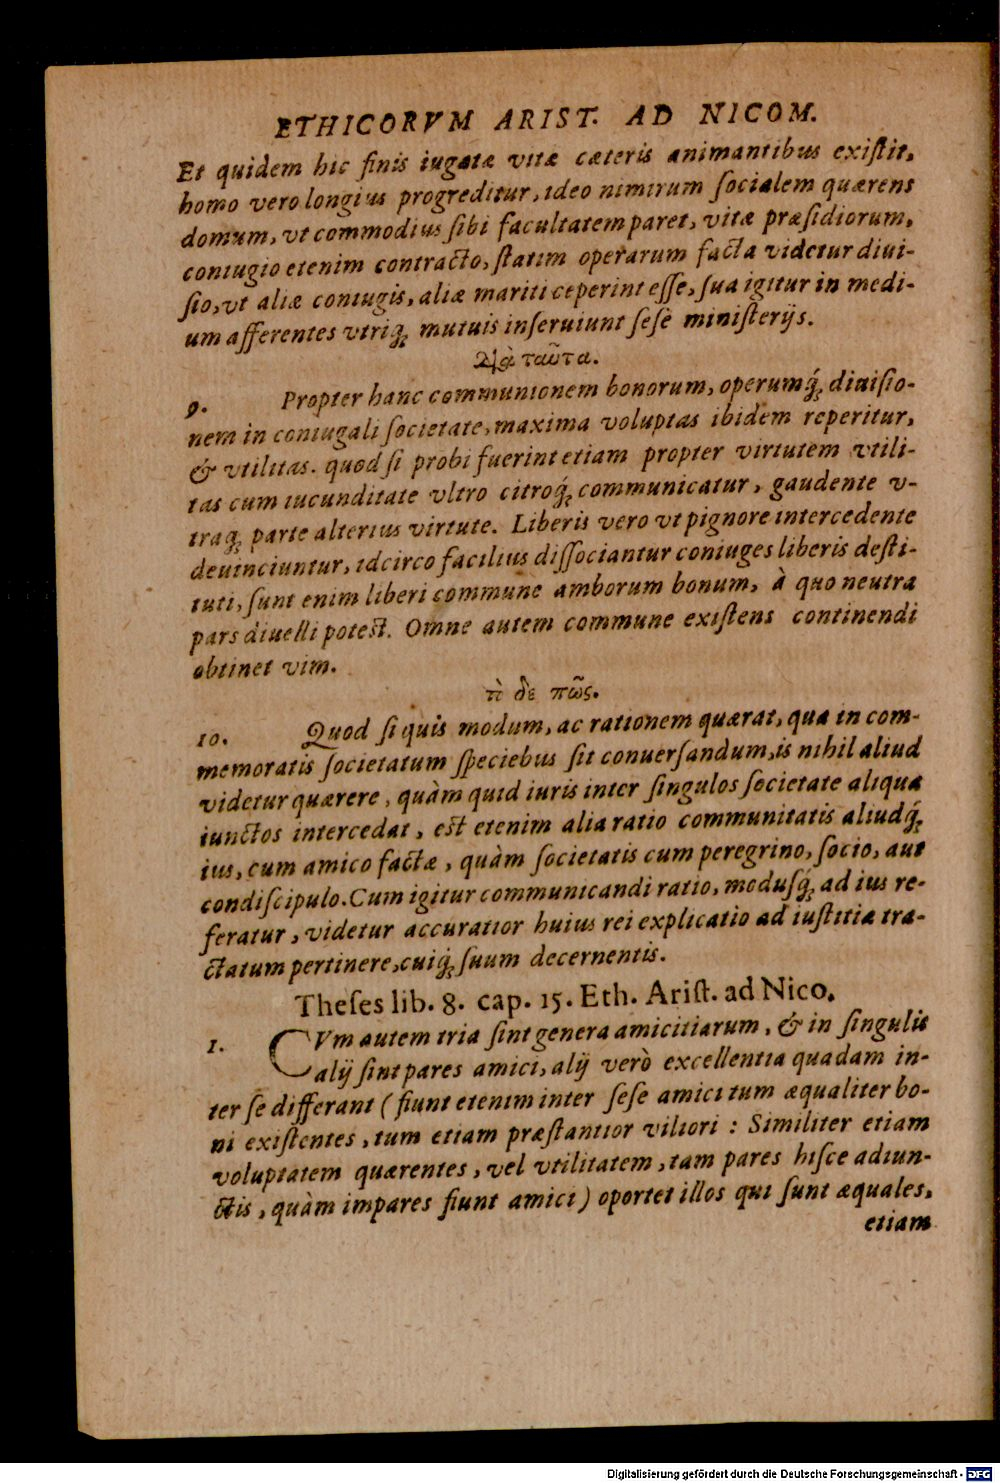 ETHICORVM ARIST. AD NICOM.
Et quidem hic finis iugatæ vitæ cæteris animantibus exiſtit,
homo vero longius progreditur, ideo nimirum ſocialem quærens
domum, vt commodius ſibi facultatem paret, vitæ præſidiorum,
coniugio etenim contracto, ſtatim operarum facta videtur diui-
ſio, vt aliæ coniugis, aliæ mariti ceperint eſſe, ſua igitur in medi-
um afferentes vtriq́ꝫ mutuis inſeruiunt ſeſè miniſterijs.
Διὰ ταῦτα.
9. Propter hanc communionem bonorum, operumq́ꝫ diuiſio-
nem in coniugali ſocietate, maxima voluptas ibidem reperitur,
& vtilitas. quod ſi probi fuerint etiam propter virtutem vtili-
tas cum iucunditate vltro citroq́ꝫ communicatur, gaudente v-
traqꝫ parte alterius virtute. Liberis vero vt pignore intercedente
deuinciuntur, idcirco facilius diſſociantur coniuges liberis deſti-
tuti, ſunt enim liberi commune amborum bonum, à quo neutra
pars diuelli poteſt. Omne autem commune exiſtens continendi
obtinet vim.
τὸ δὲ πῶς.
10. Quod ſi quis modum, ac rationem quærat, qua in com-
memoratis ſocietatum ſpeciebus ſit conuerſandum, is nihil aliud
videtur quærere, quàm quid iuris inter ſingulos ſocietate aliqua
iunctos intercedat, eſt etenim alia ratio communitatis aliudq́ꝫ
ius, cum amico factæ, quàm ſocietatis cum peregrino, ſocio, aut
condiſcipulo. Cum igitur communicandi ratio, moduſq́ꝫ ad ius re-
feratur, videtur accuratior huius rei explicatio ad iuſtitiæ tra-
ctatum pertinere, cuiq́ꝫ ſuum decernentis.
Theſes lib. 8. cap. 15. Eth. Ariſt. ad Nico.
1. CVm autem tria ſint genera amicitiarum, & in ſingulis
alij ſint pares amici, alij verò excellentia quadam in-
ter ſe differant (fiunt etenim inter ſeſe amici tum æqualiter bo-
ni exiſtentes, tum etiam præſtantior viliori : Similiter etiam
voluptatem quærentes, vel vtilitatem, tam pares hiſce adiun-
ctis, quàm impares fiunt amici) oportet illos qui ſunt æquales,
etiam
Digitalisierung gefördert durch die Deutsche Forschungsgemeinschaft - DFG